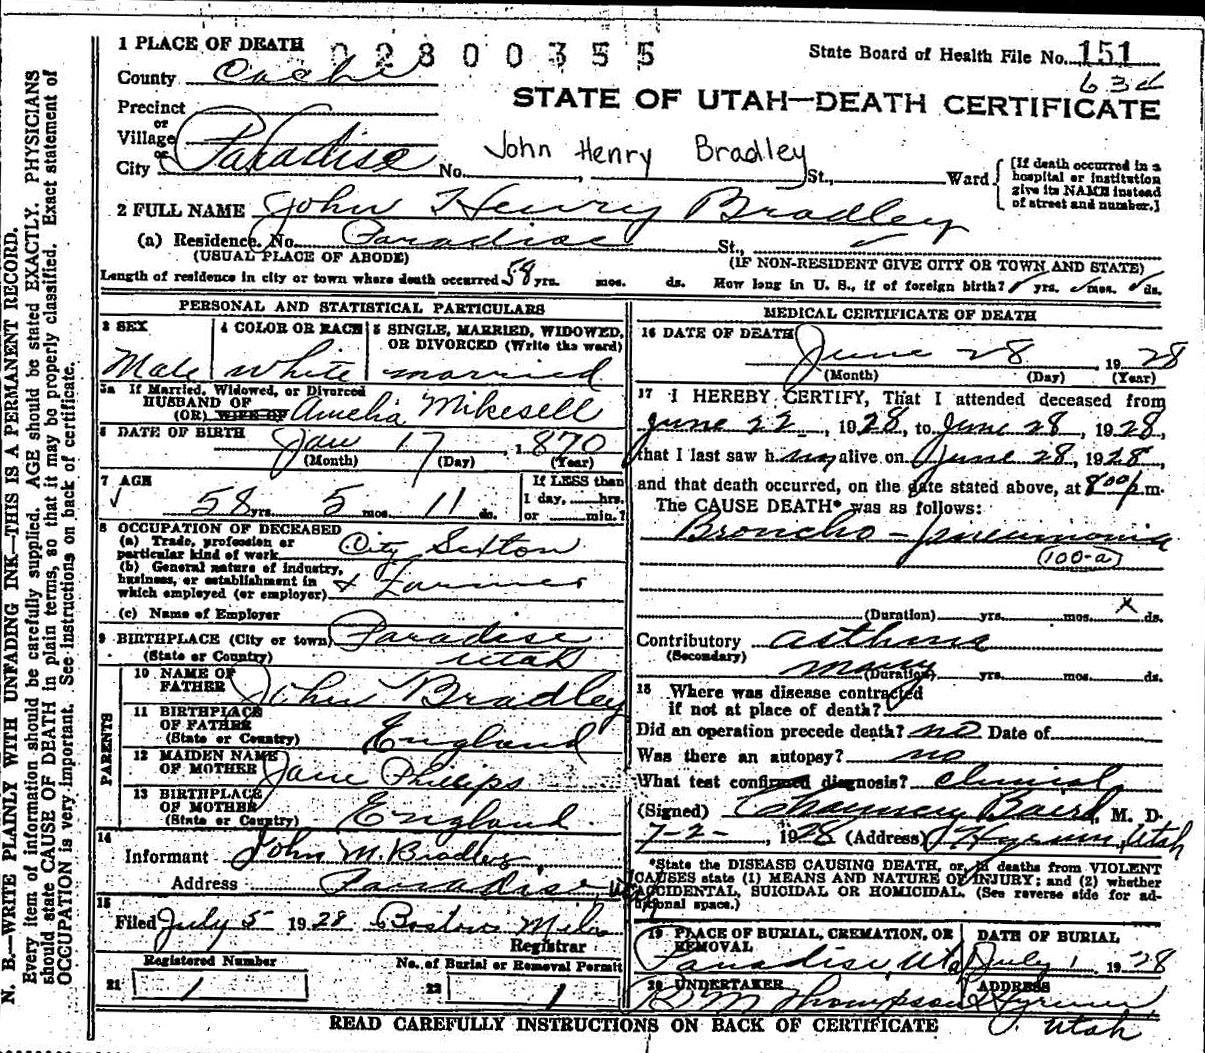 N. B.—WRITE PLAINLY WITH UNFADING INK—THIS IS A PERMANENT RECORD.
Every item of information should be carefully supplied. AGE should be stated EXACTLY. PHYSICIANS
should state CAUSE OF DEATH in plain terms, so that it may be properly classified. Exact statement of
OCCUPATION is very important. See instructions on back of certificate.
1 PLACE OF DEATH
02800355
State Board of Health File No. 151
County Cache
63d
STATE OF UTAH—DEATH CERTIFICATE
Precinct
or
Village
or
City Paradise No. John Henry Bradley St., Ward
[If death occurred in a
hospital or institution
give its NAME instead
of street and number.]
2 FULL NAME John Henry Bradley
(a) Residence. No. Paradise St.,
(USUAL PLACE OF ABODE) (IF NON-RESIDENT GIVE CITY OR TOWN AND STATE)
Length of residence in city or town where death occurred 58 yrs. mos. ds. How long in U. S., if of foreign birth? yrs. mos. ds.
PERSONAL AND STATISTICAL PARTICULARS
3 SEX 4 COLOR OR RACE 5 SINGLE, MARRIED, WIDOWED,
OR DIVORCED (Write the word)
Male white married
5a If Married, Widowed, or Divorced
HUSBAND OF
(OR) WIFE OF Amelia Mikesell
6 DATE OF BIRTH Jan 17, 1870
(Month) (Day) (Year)
7 AGE If LESS than
58 yrs. 5 mos. 11 ds. 1 day, hrs.
or min.?
8 OCCUPATION OF DECEASED
(a) Trade, profession or
particular kind of work City Sexton
(b) General nature of industry,
business, or establishment in
which employed (or employer) & Farmer
(c) Name of Employer
9 BIRTHPLACE (City or town) Paradise
(State or Country) Utah
PARENTS
10 NAME OF
FATHER John Bradley
11 BIRTHPLACE
OF FATHER
(State or Country) England
12 MAIDEN NAME
OF MOTHER Jane Phillips
13 BIRTHPLACE
OF MOTHER
(State or Country) England
14
Informant John M. Bradley
Address Paradise Ut
15
Filed July 5 1928 Registrar
Registered Number No. of Burial or Removal Permit
21 1 22 1
MEDICAL CERTIFICATE OF DEATH
16 DATE OF DEATH
June 28, 1928
(Month) (Day) (Year)
17 I HEREBY CERTIFY, That I attended deceased from
June 22, 1928, to June 28, 1928,
that I last saw him alive on June 28, 1928,
and that death occurred, on the date stated above, at 8 00 p.m.
The CAUSE DEATH* was as follows:
Broncho-pneumonia
100-a
(Duration) yrs. mos. x ds.
Contributory asthma
(Secondary)
many
(Duration) yrs. mos. ds.
18 Where was disease contracted
if not at place of death?
Did an operation precede death? no Date of
Was there an autopsy? no
What test confirmed diagnosis? clinical
(Signed) Chauncey Baird, M. D.
7-2-, 1928 (Address) Hyrum, Utah
*State the DISEASE CAUSING DEATH, or, in deaths from VIOLENT
CAUSES state (1) MEANS AND NATURE OF INJURY; and (2) whether
ACCIDENTAL, SUICIDAL OR HOMICIDAL. (See reverse side for ad-
ditional space.)
19 PLACE OF BURIAL, CREMATION, OR
REMOVAL
Paradise, Utah
DATE OF BURIAL
July 1 1928
20 UNDERTAKER ADDRESS
Thompson Hyrum,
Utah
READ CAREFULLY INSTRUCTIONS ON BACK OF CERTIFICATE